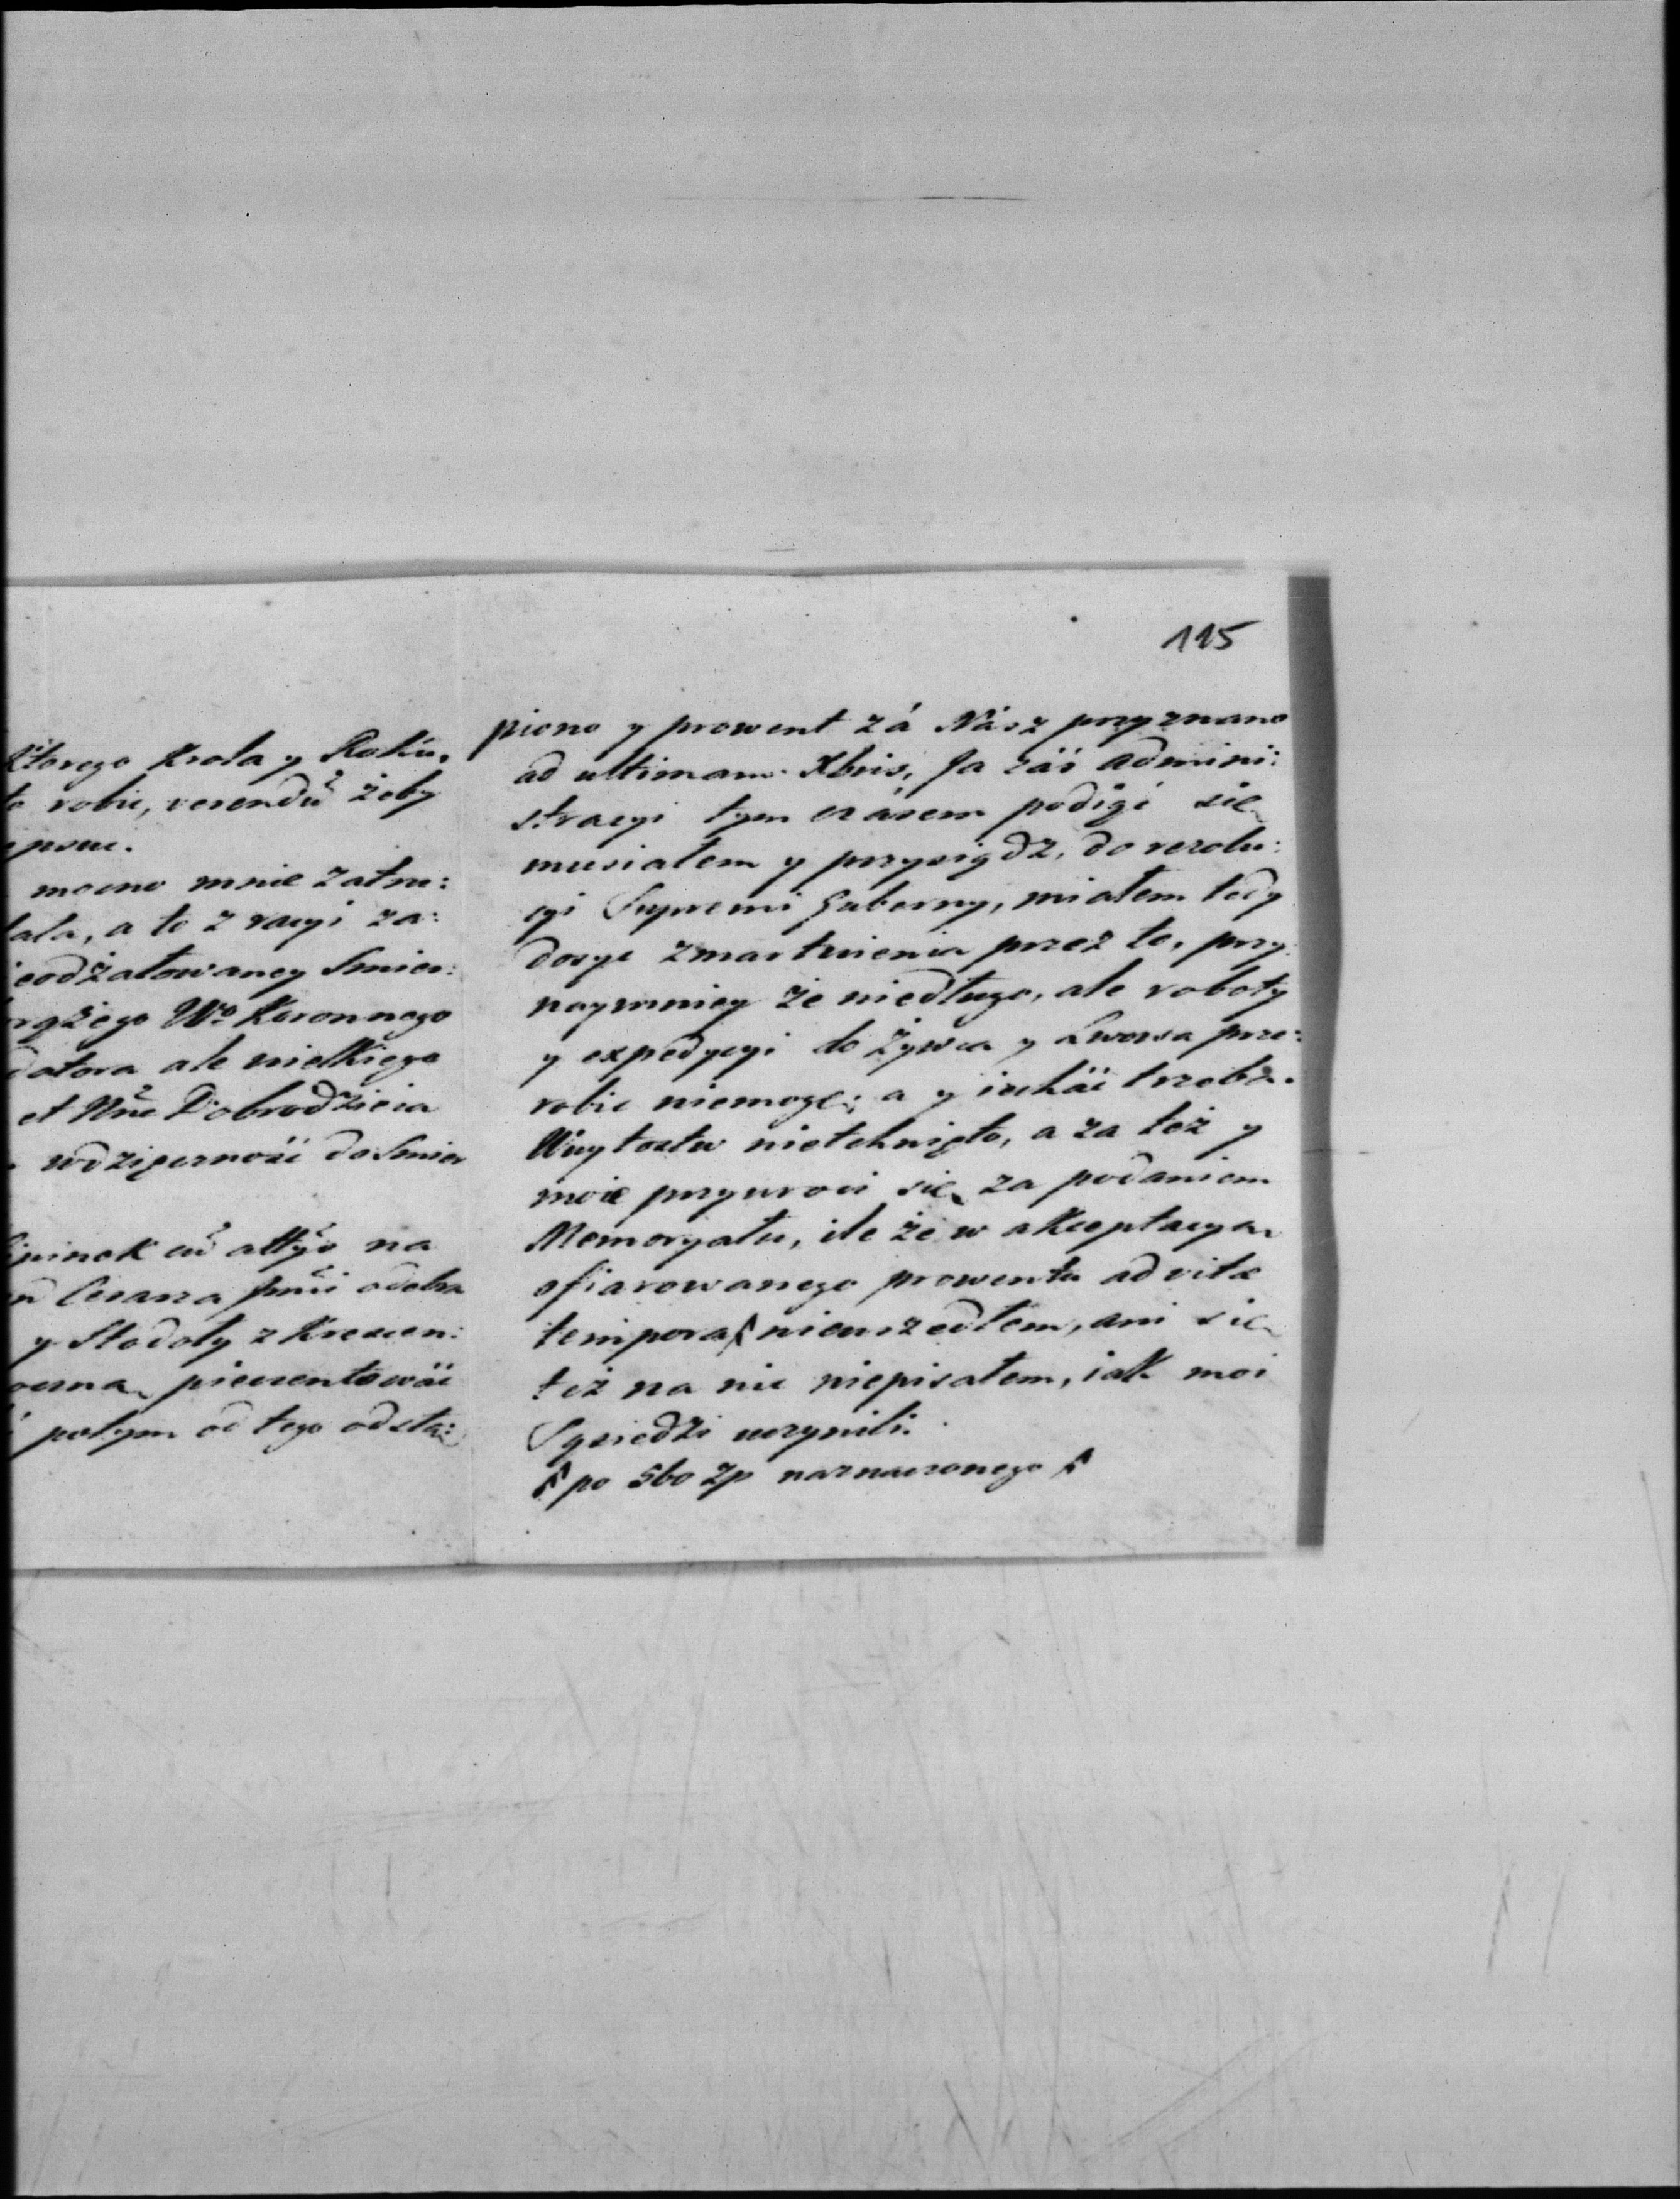 115
Ktorego Krola y Roku,
to robic, verendũ żeby
psuc.
mocno mnie zatru:
ala, a to z racyi za:
eodżałowaney Smier:
rążego Wo Koronnego
datora ale wielkiego
et Nr̃e Dobrodzieia
wdzięcznośc do Smier
pinek cũ attyo na
Cesarza odebra
y Stodoły z Krescen:
piecentowác
potym od tego odsta:
piono y prowent zá Nász przyznano
ad ultimam Xbris, Ja záś admini:
stracyi tym czásem podiąć się
musiałem y przysiądz, do rezolu:
cyi Supremi Guberny, miałem tedy
dosyc zmartwienia przez to, przy
naymniey że niedługo, ale roboty
y expedycyi do Żywca y Lwowa prze:
robic niemogę; a y iecháć trzeba.
Woytostw nietchnięto, a za też y
moie przywroci się za podaniem
Memoryału, ile że w akceptacyą
ofiarowanego prowentu ad vitæ
tempora nieuszedłem, ani się
też na nic niepisałem, iak moi
Sąsiedzi uczynili.
po 560 zp naznaczonego